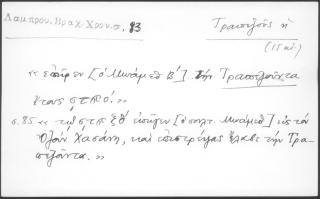 Λαμπρου. Βραχ. Χρον. σ. 83
Τραπεζοῦς ἡ
(15 αἰ.)
« ἐπῆρεν [ὁ Μωάμεθ Β΄] τὴν Τραπεζοῦντα
ἔτους ϛϠΞθ΄. »
σ. 85 « τῷ ϛϠ ξθ΄ ἐπῆγεν [ὁ σουλτ. Μωάμεθ] εἰς τὸν
Οὐζοὺν Χασάνη, καὶ ἐπιστρέψας ἔλαβε τὴν Τρα-
πεζοῦντα. »